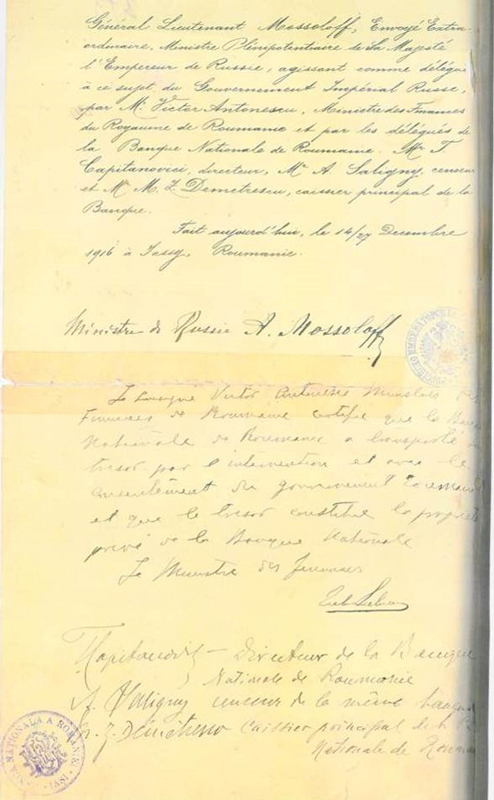 Général Lieutenant Mossoloff, Envoyé Extra-
ordinaire, Ministre Plénipotentiaire de Sa Majesté
l'Empereur de Russie, agissant comme délégué
à ce sujet du Gouvernement Impérial Russe,
par Mr Victor Antonescu, Ministre des Finances
du Royaume de Roumanie et par les délégués de
la Banque Nationale de Roumanie. Mr T.
Capitanovici, directeur, Mr A. Saligny, censeur
et Mr M. Z. Demetrescu, caissier principal de la
Banque.
Fait aujourd'hui, le 14/27 Decembre
1916 à Jassy, Roumanie.
Ministre de Russie A. Mossoloff
Je soussigné Victor Antonescu Ministre des
Finances de Roumanie certifie que la
Nationale de Roumanie a transporté
tresor par l'intervention et avec le
consentement du gouvernement roumain
et que le tresor constitue la propriété
privé de la Banque Nationale
Le Ministre des Finances
Directeur de la Banque
Nationale de Roumanie
A. Saligny censeur de la même banque
M. Z. Demetrescu Caissier principal de la
Nationale de